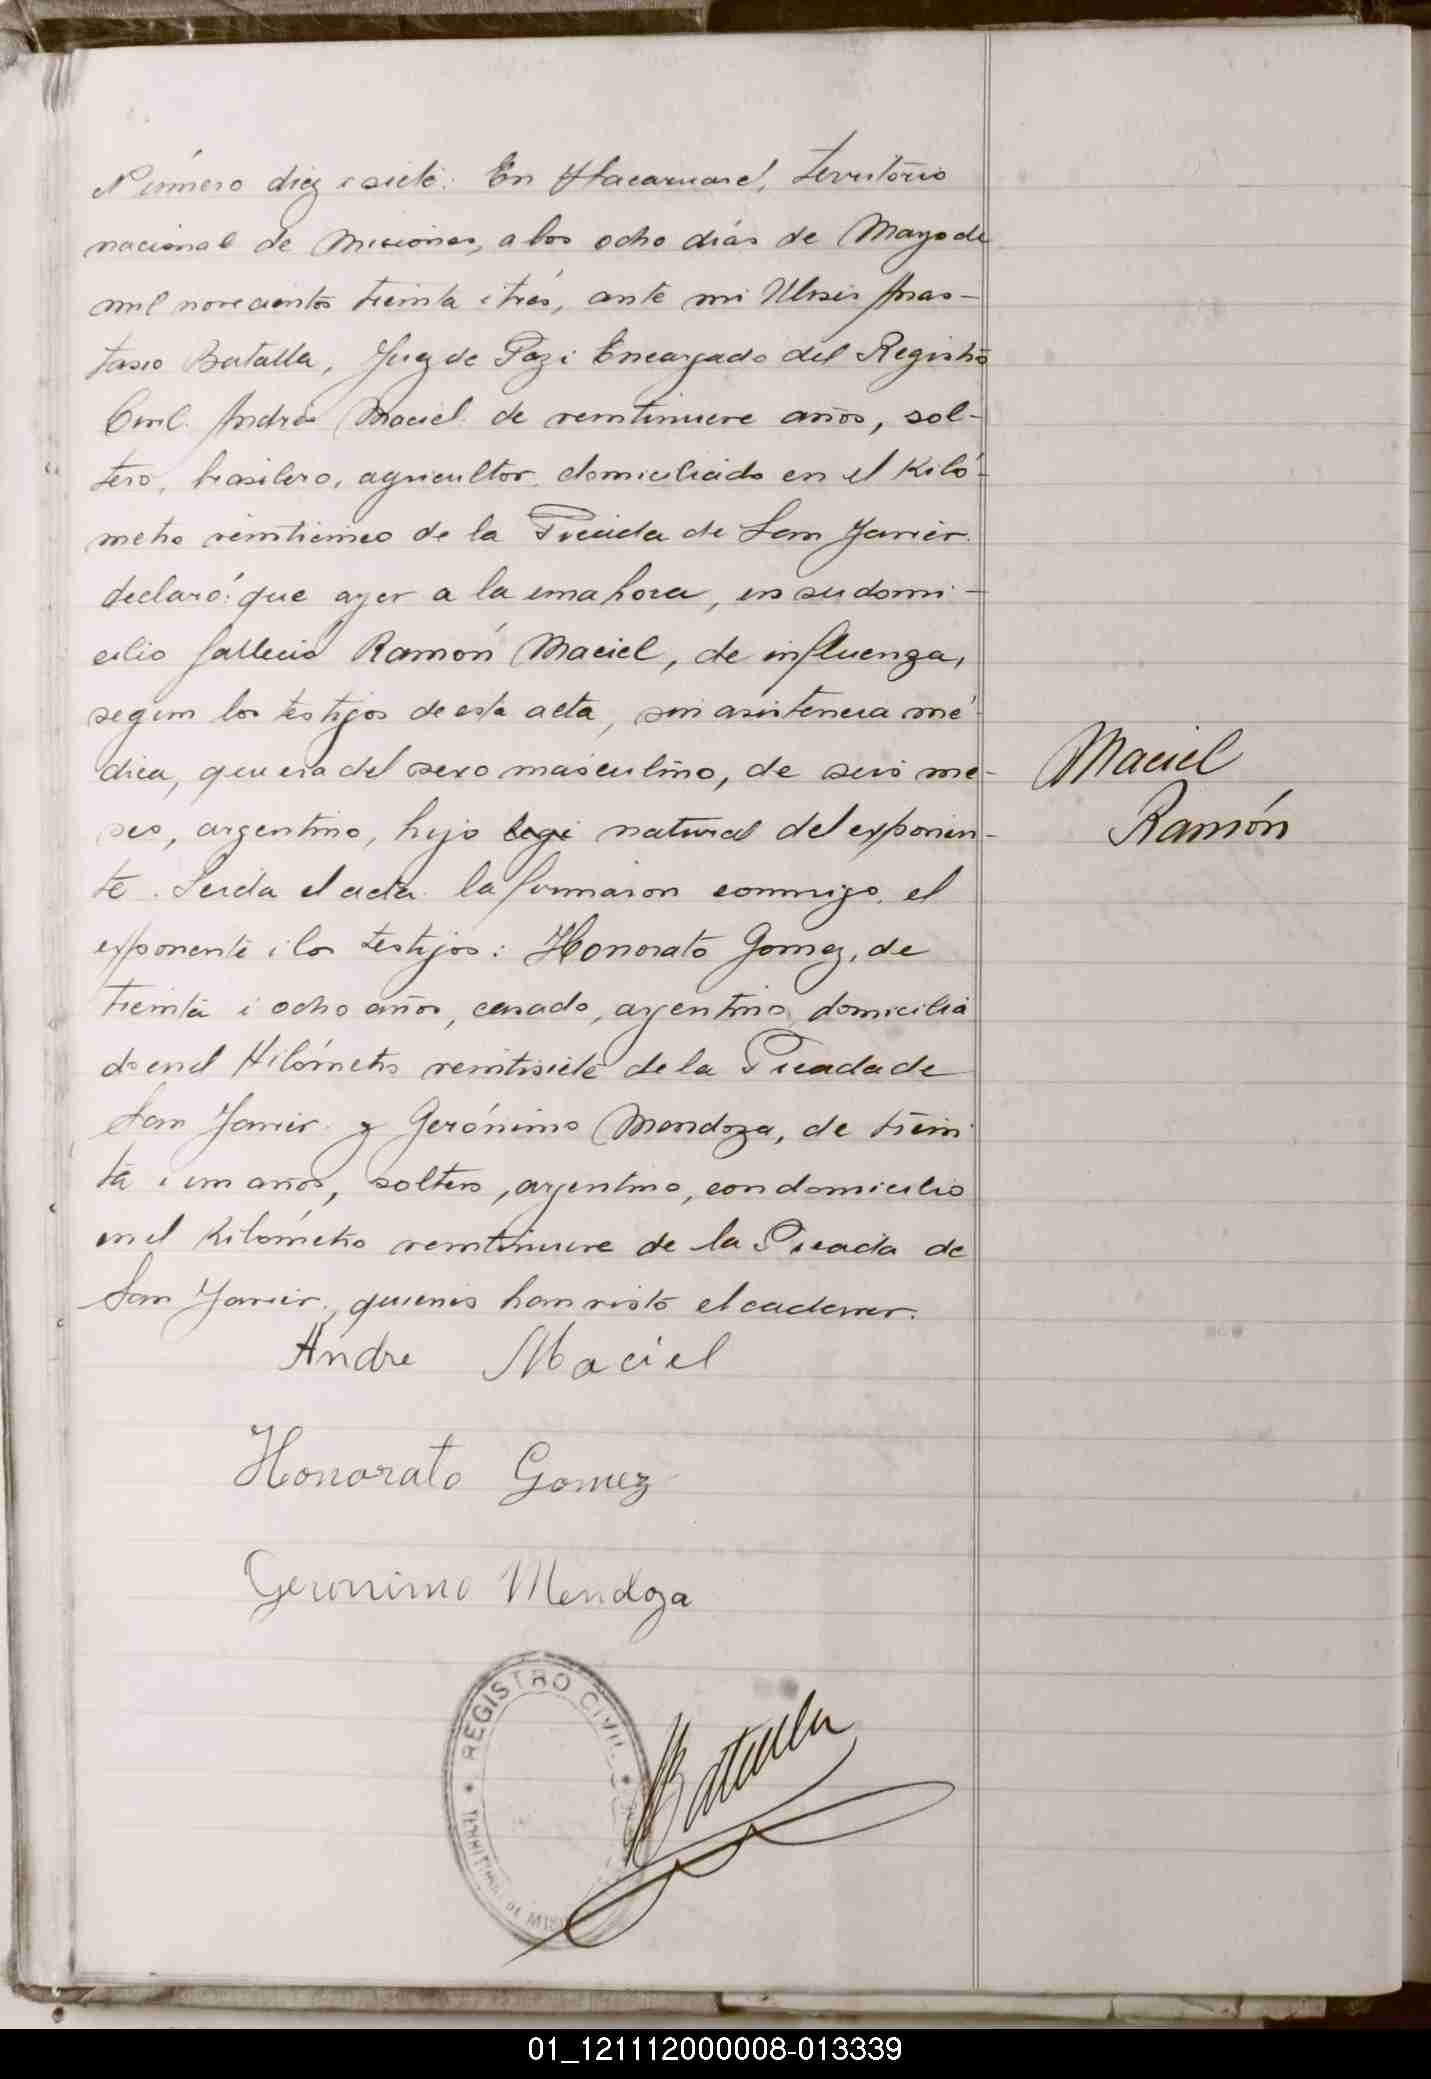 Número diez i siete: En Itacaruaré, territorio
nacional de Misiones, a los ocho días de Mayo de
mil novecientos treinta i trés, ante mi Ulises Anas-
tasio Batalla, Juez de Paz i Encargado del Registro
Civil. Andrés Maciel de veintinueve años, sol-
tero, brasilero, agricultor, domiciliado en el Kiló-
metro veinticinco de la Picada de San Javier.
declaró: que ayer a la una hora, en su domi-
cilio falleció Ramón Maciel, de influenza,
segun los testigos de esta acta, sin asistencia mé-
dica, que era del sexo masculino, de seis me-
ses, argentino, hijo legi natural del exponen-
te. Leida el acta la firmaron conmigo, el
exponente i los testigos: Honorato Gomez, de
treinta i ocho años, casado, argentino, domicilia
do en el Kilómetro veintisiete de la Picada de
San Javier. y Gerónimo Mendoza, de trein
ta i un años, soltero, argentino, con domicilio
en el Kilómetro veintinueve de la Picada de
San Javier, quienes han visto el cadaver.
Maciel
Ramón
Andre Maciel
Honorato Gomez
Geronimo Mendoza
REGISTRO CIVIL
TERRITORIO DE MISI
Batalla
01_121112000008-013339